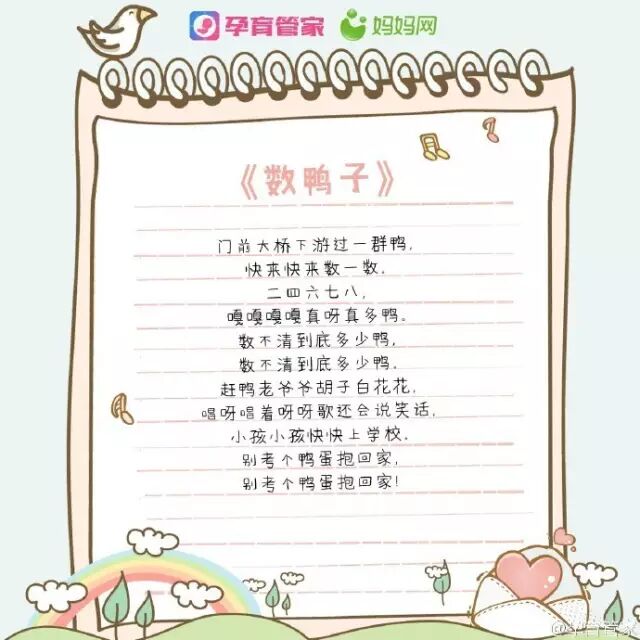 孕育管家 妈妈网
《数鸭子》
门前大桥下游过一群鸭,
快来快来数一数,
二四六七八,
嘎嘎嘎嘎真呀真多鸭。
数不清到底多少鸭,
数不清到底多少鸭,
赶鸭老爷爷胡子白花花,
唱呀唱着呀呀歌还会说笑话,
小孩小孩快快上学校,
别考个鸭蛋抱回家,
别考个鸭蛋抱回家!